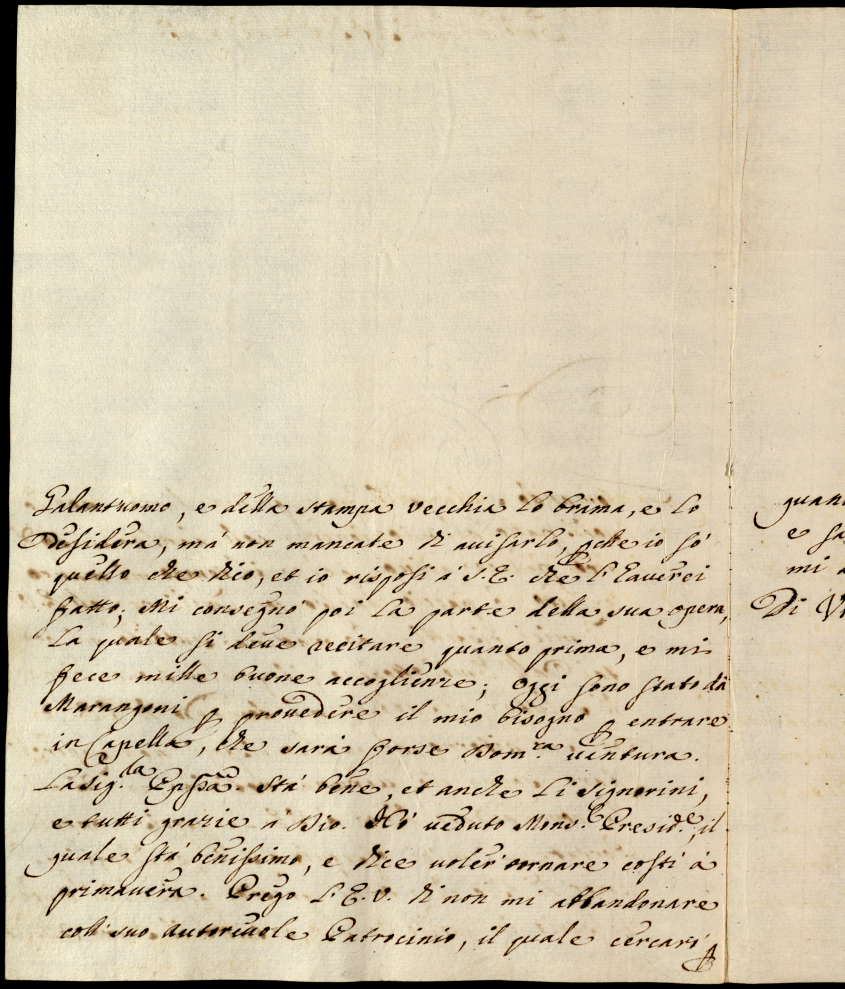 Galantuomo, e della stampa vecchia lo brama, e lo
desidera, má non mancate di avisarlo, pche io só
quello che dico, et io risposi á S. E. che l'haverei
fatto; Mi consegnò poi la parte della sua opera,
la quale si deve recitare quanto prima, e mi
fece mille buone accoglienze; oggi sono stato dà
Marangoni p provedere il mio bisogno p entrare
in Capella, che sarà forse Dom.ca ventura.
La Sig.la Epssa. stá bene, et anche li Signorini,
e tutti grazie a Dio. Hó veduto Mons.e Presid.e, il
quale stá benissimo, e dice voler tornare costi á
primavera. Prego l'E. V. di non mi abbandonare
coll suo autorevole Patrocinio, il quale cercaró
e
mi
Di